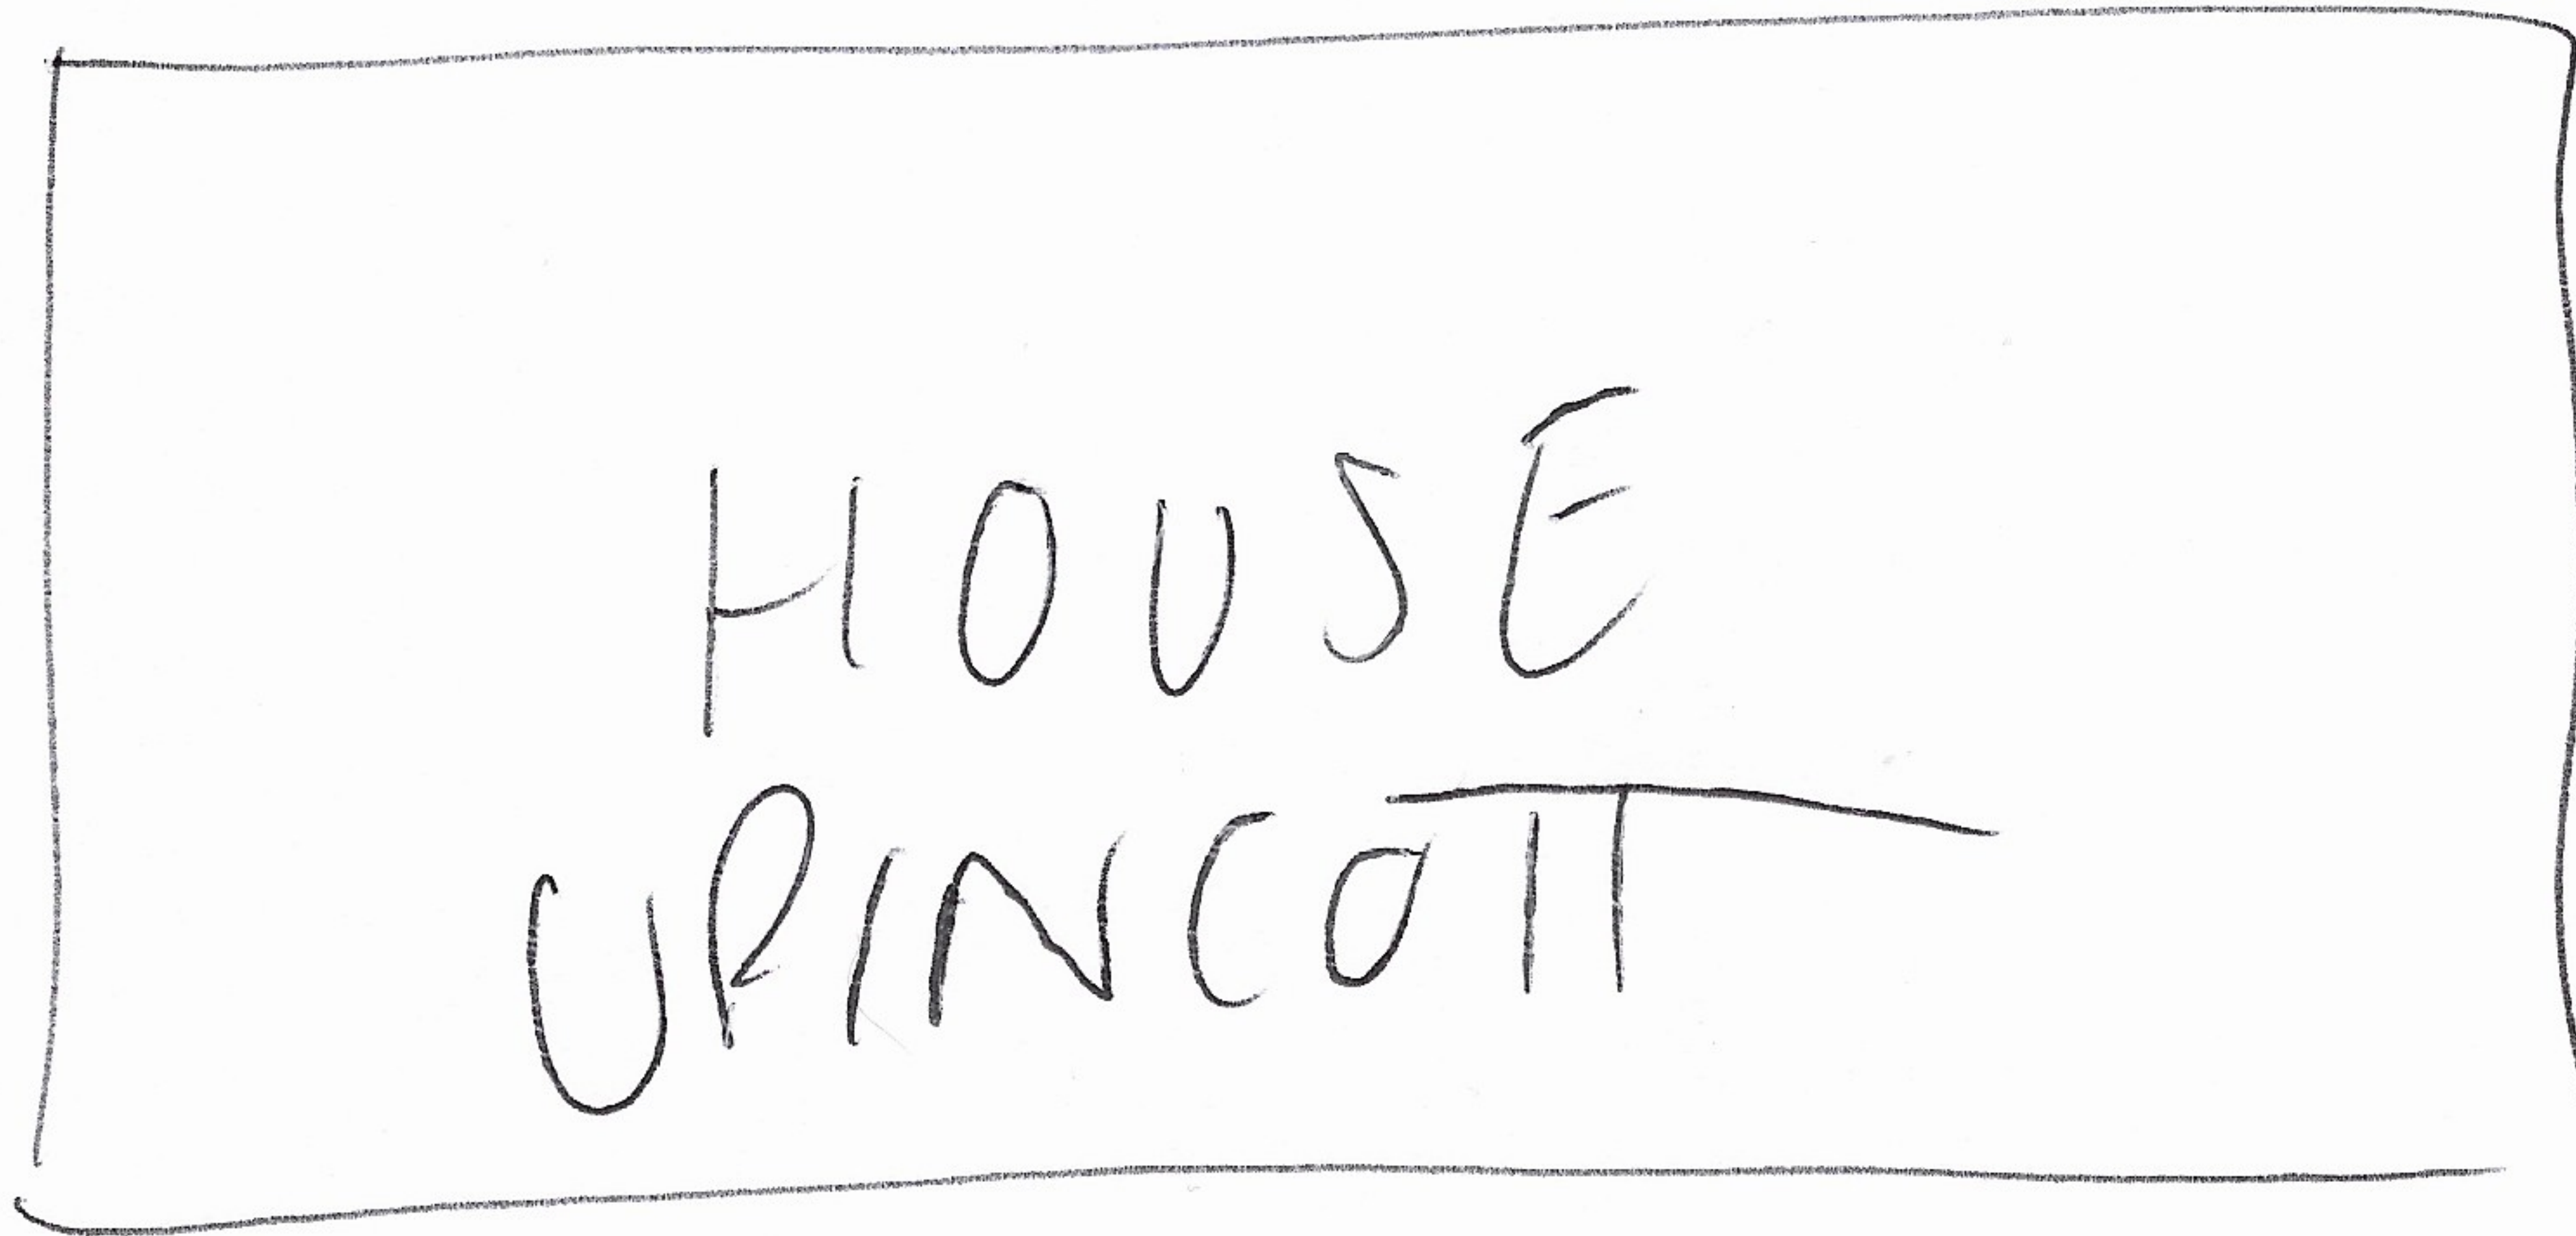 HOUSE
UPINCOTT